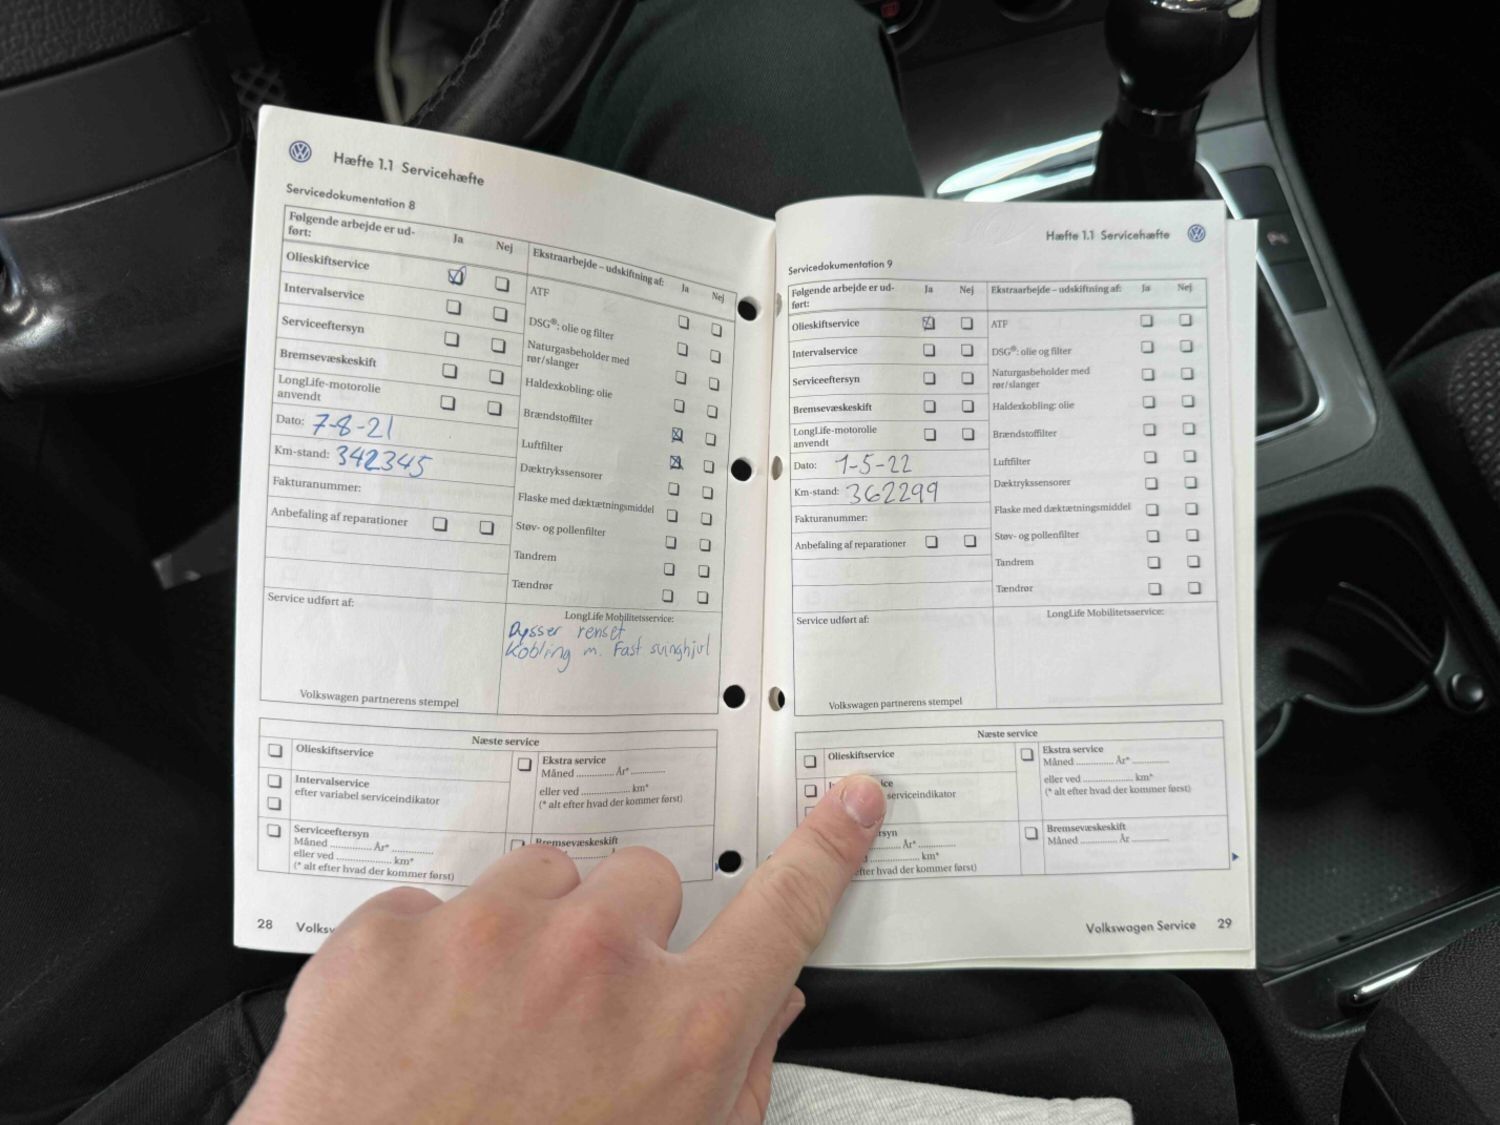 Hæfte 1.1 Servicehæfte
Servicedokumentation 8
Følgende arbejde er ud-
ført:
Ja
Nej
Olieskiftservice
Intervalservice
Serviceeftersyn
Bremsevæskeskift
LongLife-motorolie
anvendt
Dato: 7-8-21
Km-stand: 342345
Fakturanummer:
Anbefaling af reparationer
Ekstraarbejde – udskiftning af:
Ja
Nej
ATF
DSG®: olie og filter
Naturgasbeholder med
rør/slanger
Haldexkobling: olie
Brændstoffilter
Luftfilter
Dæktrykssensorer
Flaske med dæktætningsmiddel
Støv- og pollenfilter
Tandrem
Tændrør
Service udført af:
Volkswagen partnerens stempel
LongLife Mobilitetsservice:
Dysser renset
Kobling m. Fast svinghjul
Næste service
Olieskiftservice
Intervalservice
efter variabel serviceindikator
Serviceeftersyn
Måned ............ År* ............
eller ved ............ km*
(* alt efter hvad der kommer først)
Ekstra service
Måned ............ År* ............
eller ved ............ km*
(* alt efter hvad der kommer først)
Bremsevæskeskift
28
Hæfte 1.1 Servicehæfte
Servicedokumentation 9
Følgende arbejde er ud-
ført:
Ja
Nej
Olieskiftservice
Intervalservice
Serviceeftersyn
Bremsevæskeskift
LongLife-motorolie
anvendt
Dato: 1-5-22
Km-stand: 362299
Fakturanummer:
Anbefaling af reparationer
Ekstraarbejde – udskiftning af:
Ja
Nej
ATF
DSG®: olie og filter
Naturgasbeholder med
rør/slanger
Haldexkobling: olie
Brændstoffilter
Luftfilter
Dæktrykssensorer
Flaske med dæktætningsmiddel
Støv- og pollenfilter
Tandrem
Tændrør
Service udført af:
Volkswagen partnerens stempel
LongLife Mobilitetsservice:
Næste service
Olieskiftservice
serviceindikator
År* ............
km*
efter hvad der kommer først)
Ekstra service
Måned ............ År* ............
eller ved ............ km*
(* alt efter hvad der kommer først)
Bremsevæskeskift
Måned ............ År ............
Volkswagen Service 29